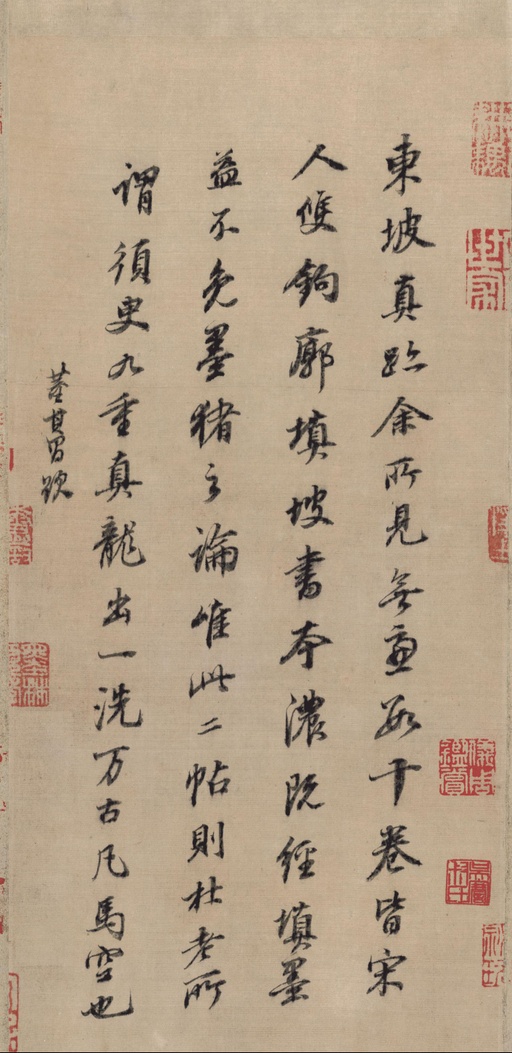 東坡真跡余所見無慮數十卷皆宋
人雙鉤廓填坡書本濃既經填墨
益不免墨豬之論唯此二帖則杜老所
謂須臾九重真龍出一洗万古凡馬空也
董其昌跋
儀周鑑賞